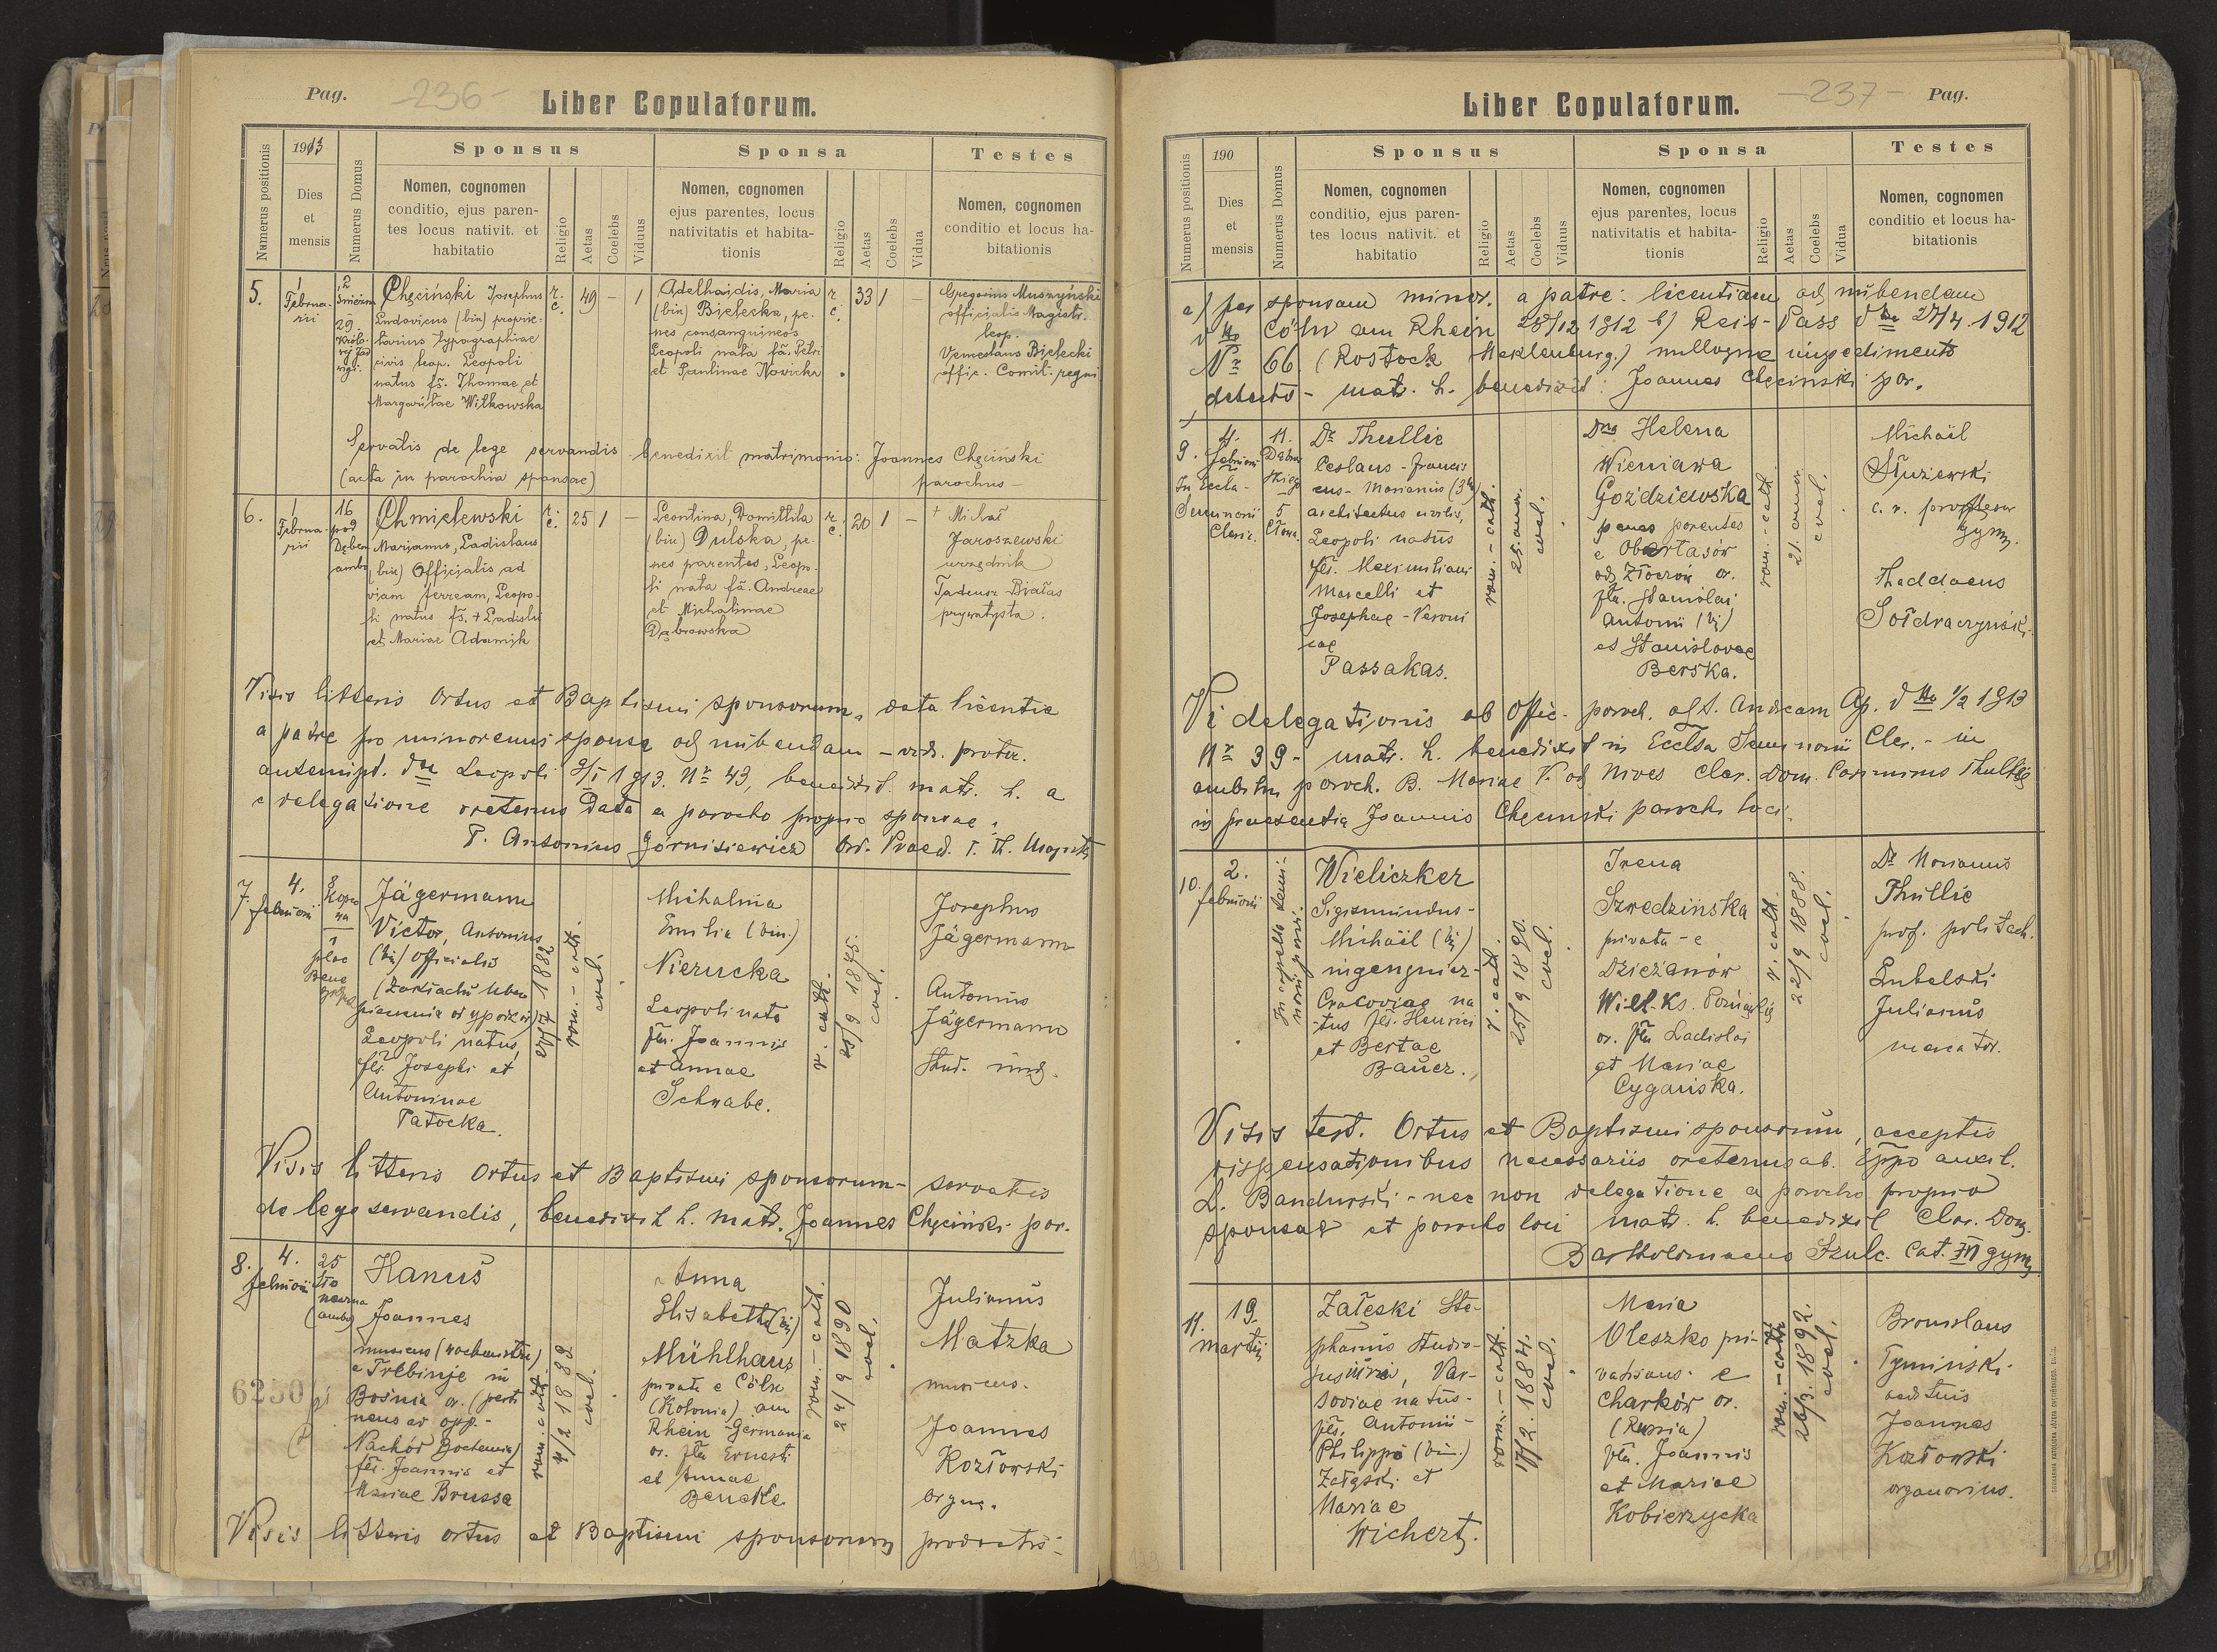 Pag. -236-
Liber Copulatorum.
Numerus positionis
1913
Dies
et
mensis
Numerus Domus
Sponsus
Nomen, cognomen
conditio, ejus paren-
tes locus nativit. et
habitatio
Religio
Aetas
Coelebs
Viduus
Sponsa
Nomen, cognomen
ejus parentes, locus
nativitatis et habita-
tionis
Religio
Aetas
Coelebs
Vidua
Testes
Nomen, cognomen
conditio et locus ha-
bitationis
5.
1
Februa-
rii
2
29
Chęciński Josephus
Ludovicus (bin) proprie-
tarius typographiae
civis leop. Leopoli
natus fs. Thomae et
Margaritae Witkowska
r.
c.
49
-
1
Adelhaidis, Maria
(bin) Bielecka, pe-
nes consanguineos
Leopoli nata fa. Petri
et Paulinae Nowicka
r.
c.
33
1
-
Gregorius Muszyński
officialis Magistr.
leop.
Venceslaus Bielecki
offic. Comit. regni
Servatis de lege servandis benedixit matrimonio: Joannes Chęcinski
(acta in parochia sponsae) parochus
6.
1
Februa-
rii
16
pod
Dębem
ambo
Chmielewski
Marjanus, Ladislaus
(bin) Officjalis ad
viam ferream, Leopo-
li natus fs. + Ladislai
et Mariae Adamik
r.
c.
25
1
-
Leontina, Domittila
(bin) Dulska, pe-
nes parentes, Leopo-
li nata fa. Andreae
et Michalinae
Dąbrowska
r.
c.
20
1
-
+ Michał
Jaroszewski
urzędnik
Tadeusz Białas
prywatysta.
Visis litteris Ortus et Baptismi sponsorum, data licentia
a patre pro minorenni sponsa ad nubendam - vid. protoc.
antenupt. dto Leopoli 9/I 1913. Nr 43, benedixit matr. h. a
delegatione oretenus data a parocho proprio sponsae:
P. Antonius Górnisiewicz Ord. Praed.
7.
4.
februarii
8
Kope-
na
1
plac
Bene
Jägermann
Victor, Antonius
(bij) officialis
(zakładu ubez-
pieczenia od wypadków)
Leopoli natus,
fls. Josephi et
Antoninae
Patocka.
1882
rom.-cath.
coel.
Michalina
Emilia (bin.)
Nierucka
Leopoli nata
fla. Joannis
et Annae
Schwabe.
r. cath.
25/9 1875.
coel.
Josephus
Jägermann
Antonius
Jägermann
stud. iur.
Visis litteris Ortus et Baptismi sponsorum - servatis
de lege servandis, benedixit h. matr. Joannes Chęciński par.
8.
4.
februarii
25
(ambo)
Hanuš
Joannes
musicus (wachmistrz)
e Trebinje in
Bosnia or. (perti
nens ad opp.-
Nachód Bochemia)
fls. Joannis et
Mariae Brussa
rom.-cath.
4/2 1882
coel.
Anna
Elisabetha (bij)
Mühlhaus
privata e Cöln
(Kolonia) am
Rhein - Germania
or. fla Ernesti
et Annae
Bencke
rom.-cath.
24/9 1890
coel.
Julianus
Matzka
musicus.
Joannes
Kozłowski
organ.
6250
Visis litteris ortus et Baptismi sponsorum productis -
Liber Copulatorum.
-237- Pag.
Numerus positionis
190
Dies
et
mensis
Numerus Domus
Sponsus
Nomen, cognomen
conditio, ejus paren-
tes locus nativit. et
habitatio
Religio
Aetas
Coelebs
Viduus
Sponsa
Nomen, cognomen
ejus parentes, locus
nativitatis et habita-
tionis
Religio
Aetas
Coelebs
Vidua
Testes
Nomen, cognomen
conditio et locus ha-
bitationis
a) per sponsam minor. a patre: licentiam ad nubendam
dto Cöln am Rhein 28/12 1912 b) Reis-Pass dto 27/4 1912
Nr 66 (Rostock Meklenburg.) nulloque impedimento
detecto - matr. h. benedixit: Joannes Chęcinski par.
9.
4.
februarii
In Eccla-
Seminarii
Cleric.
11.
5
Dr Thullie
Ceslaus - Francis
cus - Marianus (3bij)
architectus civilis,
Leopoli natus
fls. Maximiliani
Marcelli et
Josephae - Veroni
cae
Passakas.
rom.-cath.
25. annor.
coel.
Dna Helena
Wieniawa
Goździewska
penes parentes
e Obertasów
ad Złoczów or.
fla. Stanislai
Antonii (bij)
et Stanislavae
Berska.
rom.-cath.
21. annor
coel.
Michaël
Służewski
c. r. professor
gymn.
Thaddaeus
Sołdraczyński.
Vi delegationis ab Offic. paroch. ad S. Andream Ap. dto 1/2 1913
Nr 39 - matr. h. benedixit in Ecclsa Seminarii Cler. - in
ambitu paroch. B. Mariae V. ad Nives Clar. Dom. Casimirus Thullie
in praesentia Joannis Chęcinski parochi loci.
10.
2.
februarii
In capella semi-
narii
Wieliczker
Sigismundus -
Michaël (bij)
ingegnier -
Cracoviae na
-tus fls. Henrici
et Bertae
Bauer.
r. cath.
25/9 1890.
coel.
Irena
Szwedzińska
privata - e
Dzieżanów
Wielk. Ks.
or. fla Ladislai
et Mariae
Cygańska.
r. cath.
22/9 1888.
coel.
Dr Marianus
Thullie
prof. politech.
Lubelski
Julianus
mercator.
Visis test. Ortus et Baptismi sponsorum, acceptis
dispensationibus necessariis oretenus ab Eppo auxil.
L. Bandurski - nec non delegatione a parocho proprio
sponsae et parocho loci matr. h. benedixit Clar. Dom.
Bartholomaeus Szulc Cat. III gymn.
11.
19.
martii
Załeski Ste-
phanus studio-
sus iuris, Var-
soviae natus -
fls. Antonii -
Philippi (bin.)
Załęski et
Mariae
Wichert.
rom.-cath.
17/2. 1884.
coel.
Maria
Oleszko pri-
vatisans - e
Charków or.
(Russia)
fla. Joannis
et Mariae
Kobierzycka
rom.-cath
1892.
coel.
Bronislaus
Tyminski
aedituus
Joannes
Kozłowski
organarius.